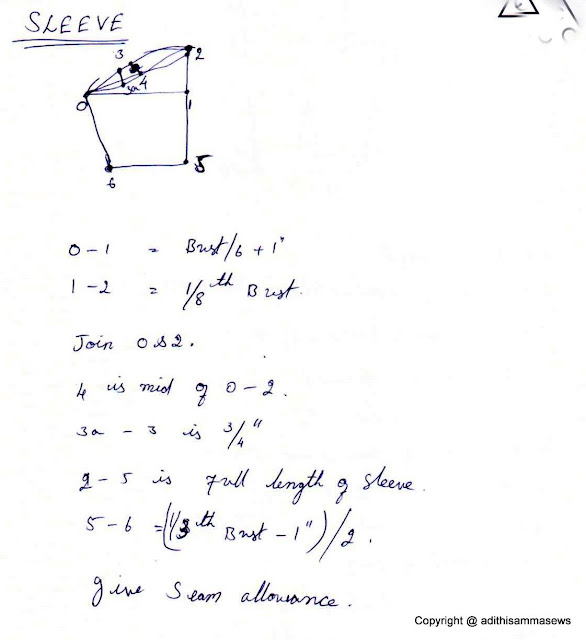 SLEEVE
3
2
4
3a
0
1
5
6
0 - 1 = Bust/6 + 1"
1 - 2 = 1/8th Bust.
Join 0 & 2.
4 is mid of 0 - 2.
3a - 3 is 3/4"
2 - 5 is Full length of Sleeve.
5 - 6 = (1/3th Bust - 1")/2.
give Seam allowance.
Copyright @ adithisammasews